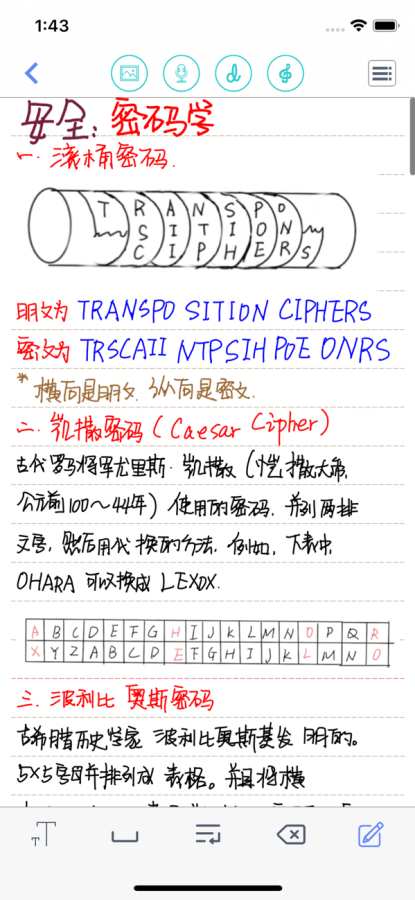 1:43
安全：密码学
一. 滚桶密码.
T R A N S P O
S I T I O N
C I P H E R S
明文为 TRANSPO SITION CIPHERS
密文为 TRSCAII NTPSIHPOE ONRS
* 横向是明文. 纵向是密文.
二. 凯撒密码 (Caesar Cipher)
古代罗马将军尤里斯·凯撒 (恺撒大帝,
公元前100~44年) 使用的密码. 并列两排
文字, 然后用代换的方法. 例如, 下表中,
OHARA 可以换成 LEXOX.
A B C D E F G H I J K L M N O P Q R
X Y Z A B C D E F G H I J K L M N O
三. 波利比奥斯密码
古希腊历史学家 波利比奥斯 发明的。
5×5字母并排列成 表格。并且将横